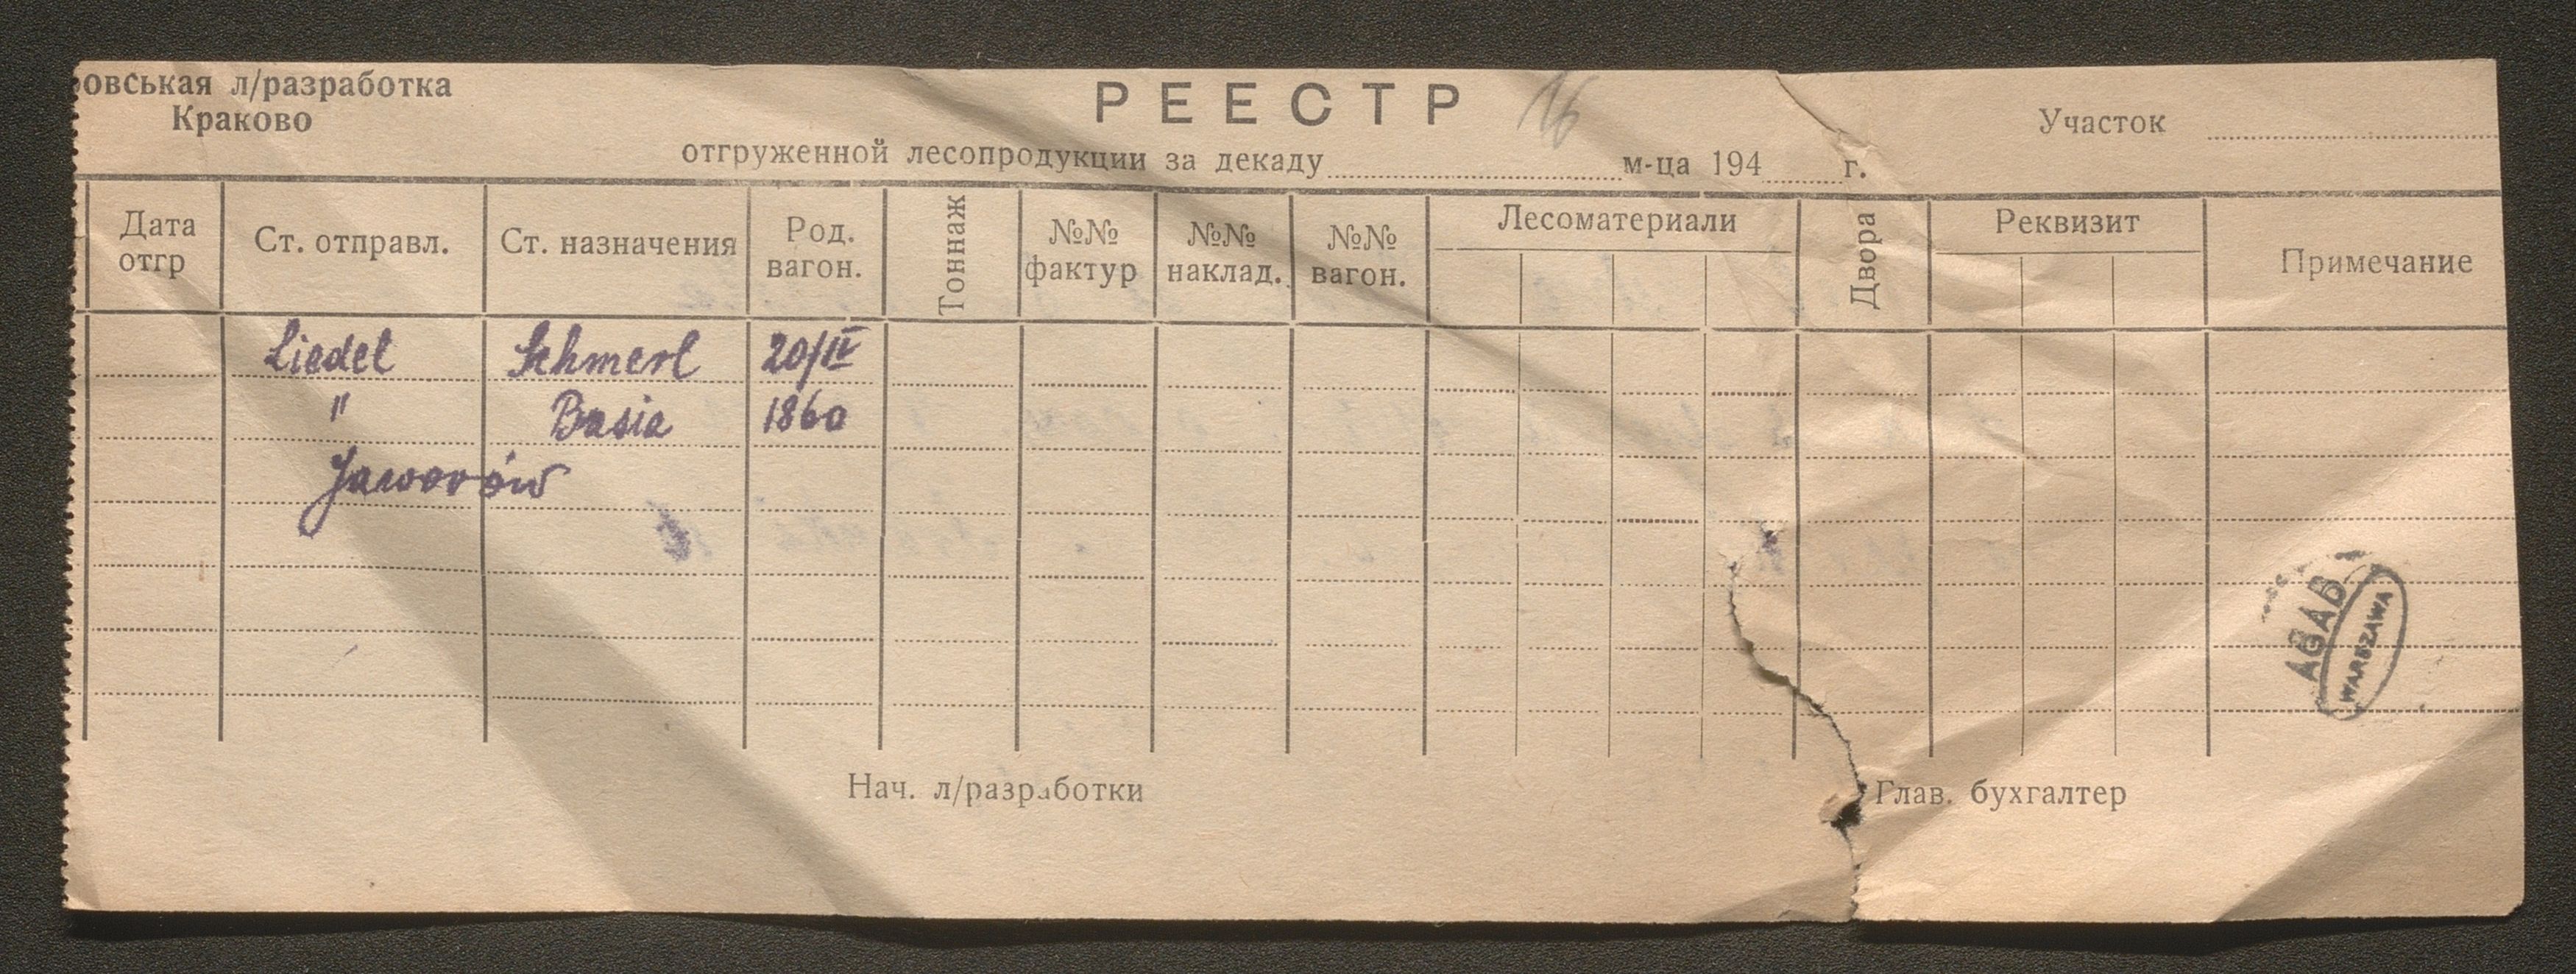 овськая л/разработка
Краково
РЕЕСТР 16
Участок
отгруженной лесопродукции за декаду м-ца 194 г.
Дата отгр
Ст. отправл.
Ст. назначения
Род. вагон.
Тоннаж
№№ фактур
№№ наклад.
№№ вагон.
Лесоматериали
Двора
Реквизит
Примечание
Liedel Schmerl 20/IV
" Basia 1860
Jaworów
AGAD
WARSZAWA
Нач. л/разработки
Глав. бухгалтер